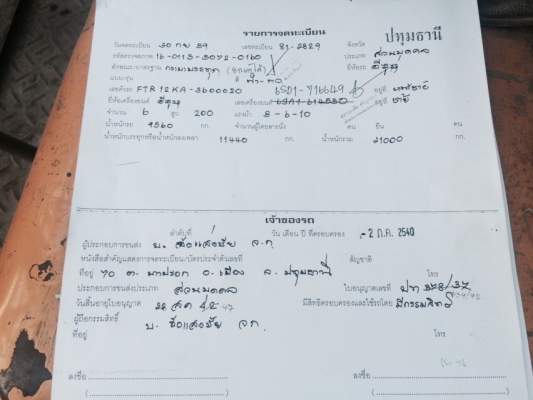 รายการจดทะเบียน
วันจดทะเบียน 20 กย 39 เลขทะเบียน 81-2829 จังหวัด ปทุมธานี
รหัสตรวจสภาพ 16-0113-3072-0160 ประเภท ส่วนบุคคล
ลักษณะ/มาตรฐาน กระบะบรรทุก ยี่ห้อรถ อีซูซุ
แบบ/รุ่น สี ฟ้า-
เลขตัวรถ FTR12KA-3600020 6SD1-716649 อยู่ที่
ยี่ห้อเครื่องยนต์ อีซูซุ เลขเครื่องยนต์ อยู่ที่ ซ้าย
จำนวน 6 สูบ 200 แรงม้า 3-6-10
น้ำหนักรถ 9560 กก. จำนวนผู้โดยสารนั่ง คน ยืน คน
น้ำหนักบรรทุกหรือน้ำหนักลงเพลา 11440 กก. น้ำหนักรวม 21000 กก.
เจ้าของรถ
ลำดับที่ 1 วัน เดือน ปี ที่ครอบครอง -2 ก.ค. 2540
ผู้ประกอบการขนส่ง บ. จก
หนังสือสำคัญแสดงการจดทะเบียน/บัตรประจำตัวเลขที่ สัญชาติ
ที่อยู่ 70 ต. บางปรอก อ. เมือง จ. ปทุมธานี โทร
ประกอบการขนส่งประเภท ส่วนบุคคล ใบอนุญาตเลขที่ ปท 378/37
วันสิ้นอายุใบอนุญาต 22 สค 42 47 มีสิทธิครอบครองและใช้รถโดย มีกรรมสิทธิ์
ผู้ถือกรรมสิทธิ์ บ. จก.
ที่อยู่ โทร
ลงชื่อ ลงชื่อ
( ) ( )